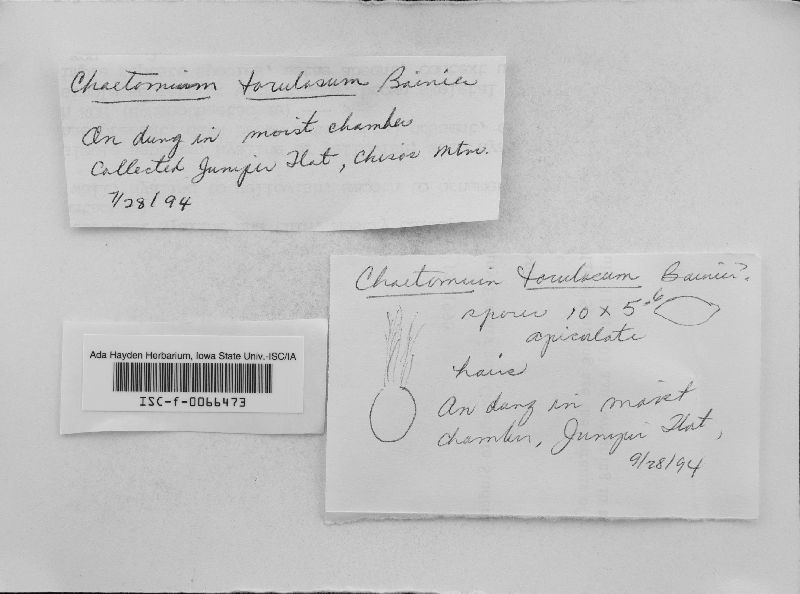 Chaetomium torulosum Bainier
On dung in moist chamber
Collected Juniper Flat, Chisos Mtn.
7/28/94
Chaetomium torulosum Bainier?
spores 10 x 5-6
apiculate
hairs
On dung in moist
chamber, Juniper Flat,
9/28/94
Ada Hayden Herbarium, Iowa State Univ.-ISC/IA
ISC-f-0066473